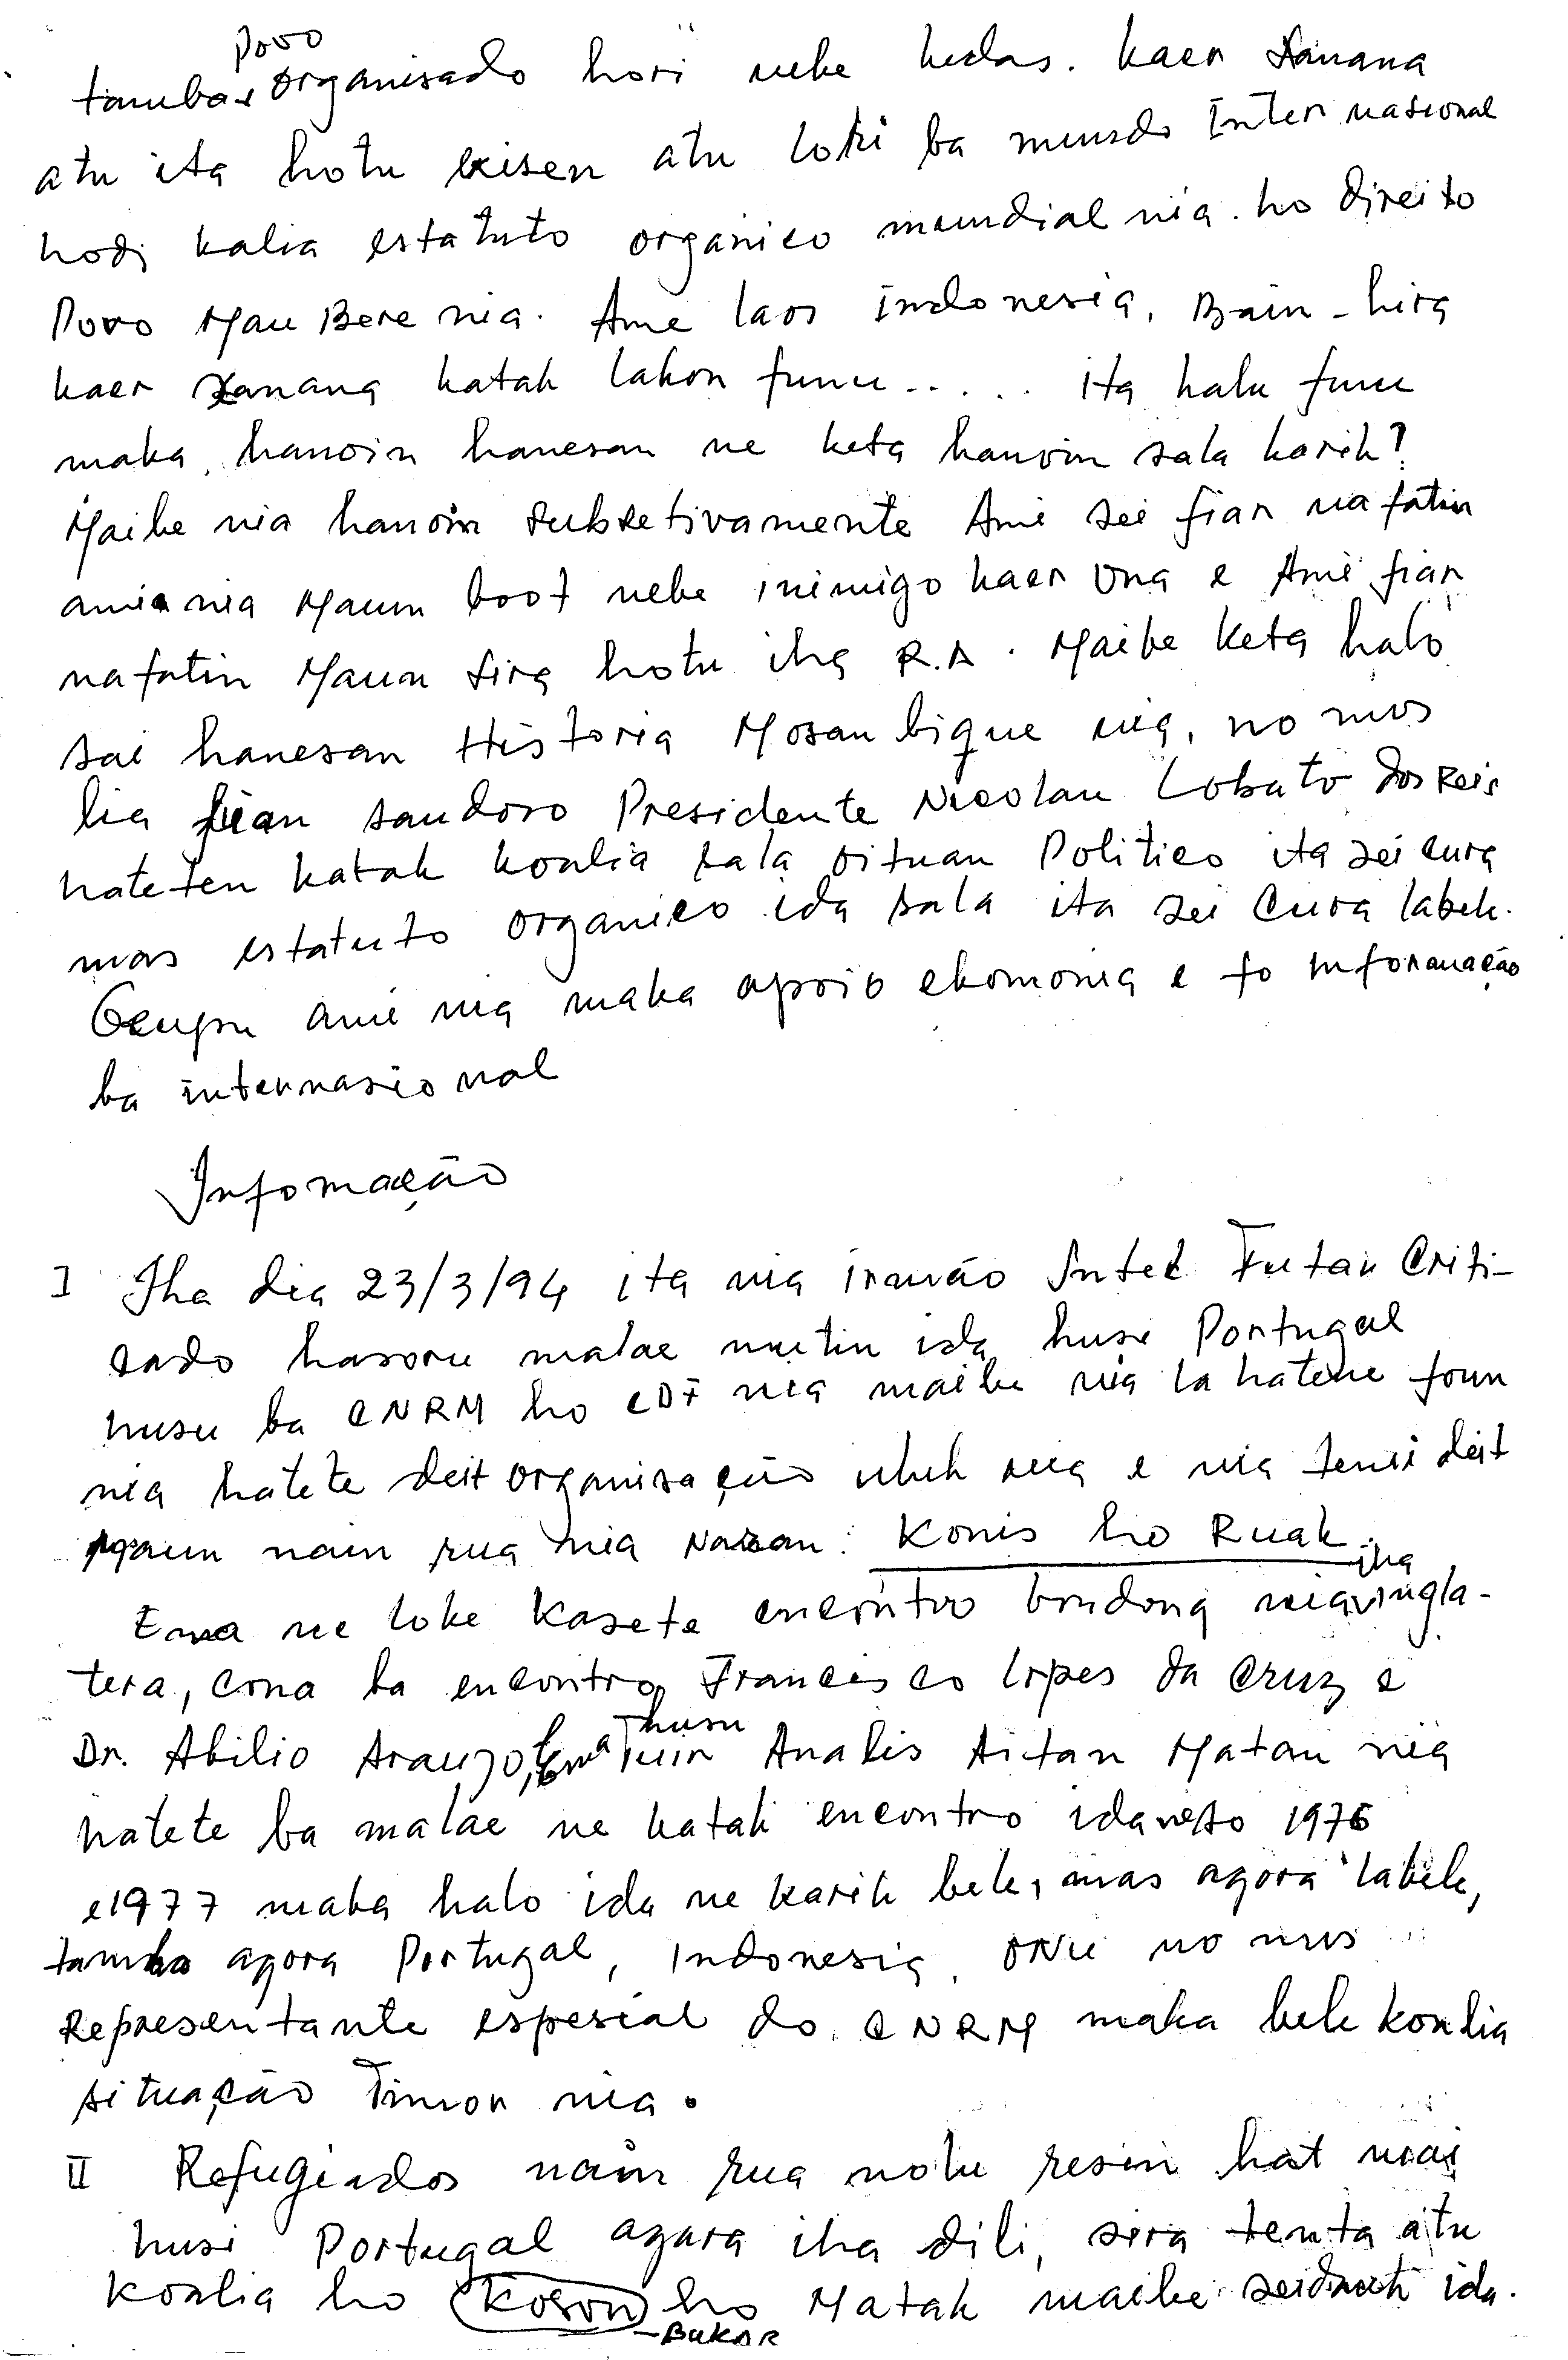 Povo
tamba organisado hori nebe kedas. kaer Xanana
atu ita hotu exisen atu lori ba mundo Internasional
hodi kalia estatuto organico mundial nia. ho direito
Povo MauBere nia. Ame laos indonesia, Bain-hira
kaer Xanana katak lakon funu..... ita halu funu
maka, hanoin hanesan ne keta hanoin sala karik?
Maibe nia hanoin subsetivamente Ami sei fiar nafatin
ami nia Maun boot nebe inimigo kaer Ona e Ami fiar
nafatin Maun sira hotu iha R.A. Maibe keta halo
sai hanesan Historia Mosanbique nia, no mos
lia fuan saudoso Presidente Nicolau Lobato dos Reis
hateten katak koalia sala oituan Politico ita sei cura
mas estatuto organico ida sala ita sei Cura labele.
Ocupu ami nia maka apoio ekomonia e fo informação
ba internasional
Infomação
I Iha dia 23/3/94 ita nia irmão Intel Futan Criti-
cado hasoru malae mutin ida husi Portugal
husu ba CNRM ho CDF nia maibe nia la hatene foun
nia hatete deit organisação uluk nia e nia temi deit
Maun nain rua nia Naran: Konis ho Ruak.
iha
Ema ne loke Kasete encontro bondong nia ingla-
tera, cona ba encontro Francisco lopes da Cruz e
husu
Dr. Abilio Araujo, ema Tuir Analis Aitan Matan nia
hatete ba malae ne katak encontro ida ne so 1976
e 1977 maka halo ida ne karik bele, mas agora labele,
tamba agora Portugal, Indonesia, ONU no mos
Representante espesial do CNRM maka bele koalia
situação Timor nia.
II Refugiados nain rua nolu resin hat mai
husi Portugal agara iha dili, sira tenta atu
Koalia ho Koson ho Matak maibe seidauk ida.
-BukAR